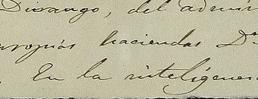 Durango, del admin
propios haciendas Dn
. En la inteligenci